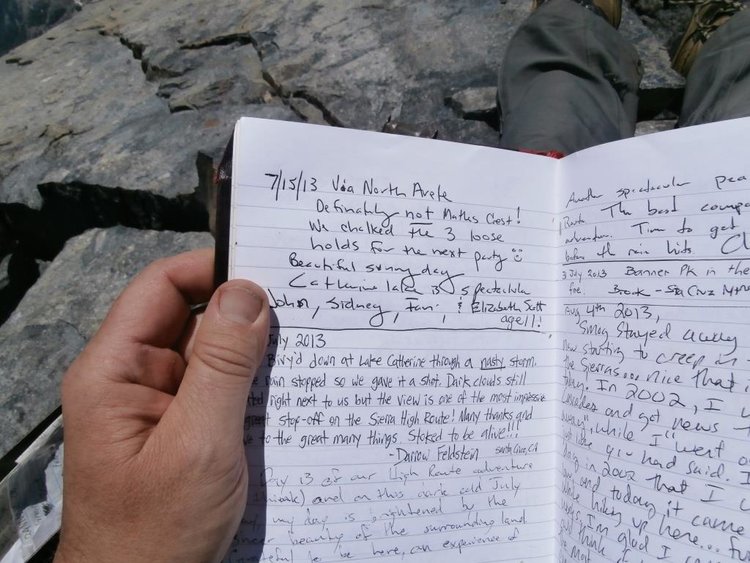 7/15/13 Via North Arete
Definately not Mathes Crest!
We chalked the 3 loose
holds for the next party
Beautiful sunny day
Catherine lake is spectacular
John, Sidney, & Elizabeth Scott
age 11!
July 2013
Bivy'd down at Lake Catherine through a nasty storm.
rain stopped so we gave it a shot. Dark clouds still
right next to us but the view is one of the most impressive
great stop-off on the Sierra High Route! Many thanks and
to the great many things. Stoked to be alive!!!
- Darrow Feldstein Santa Cruz, CA
Day 13 of our High Route adventure
and on this dark cold July
my day is brightened by the
beauty of the surrounding land
to be here, an experience of
Another spectacular pea
Route The best compa
adventure. Time to get
before the rain hits.
3 July 2013 Banner Pk in the
Brook - Sta Cruz Mtns
Aug 4th 2013,
Smog stayed away
now starting to creep in
the Sierras... nice that
today. In 2002, I w
and got news
while I went o
you had said. I
in 2002 that I c
and today it came
while hiking up here... fu
I'm glad I
think
most